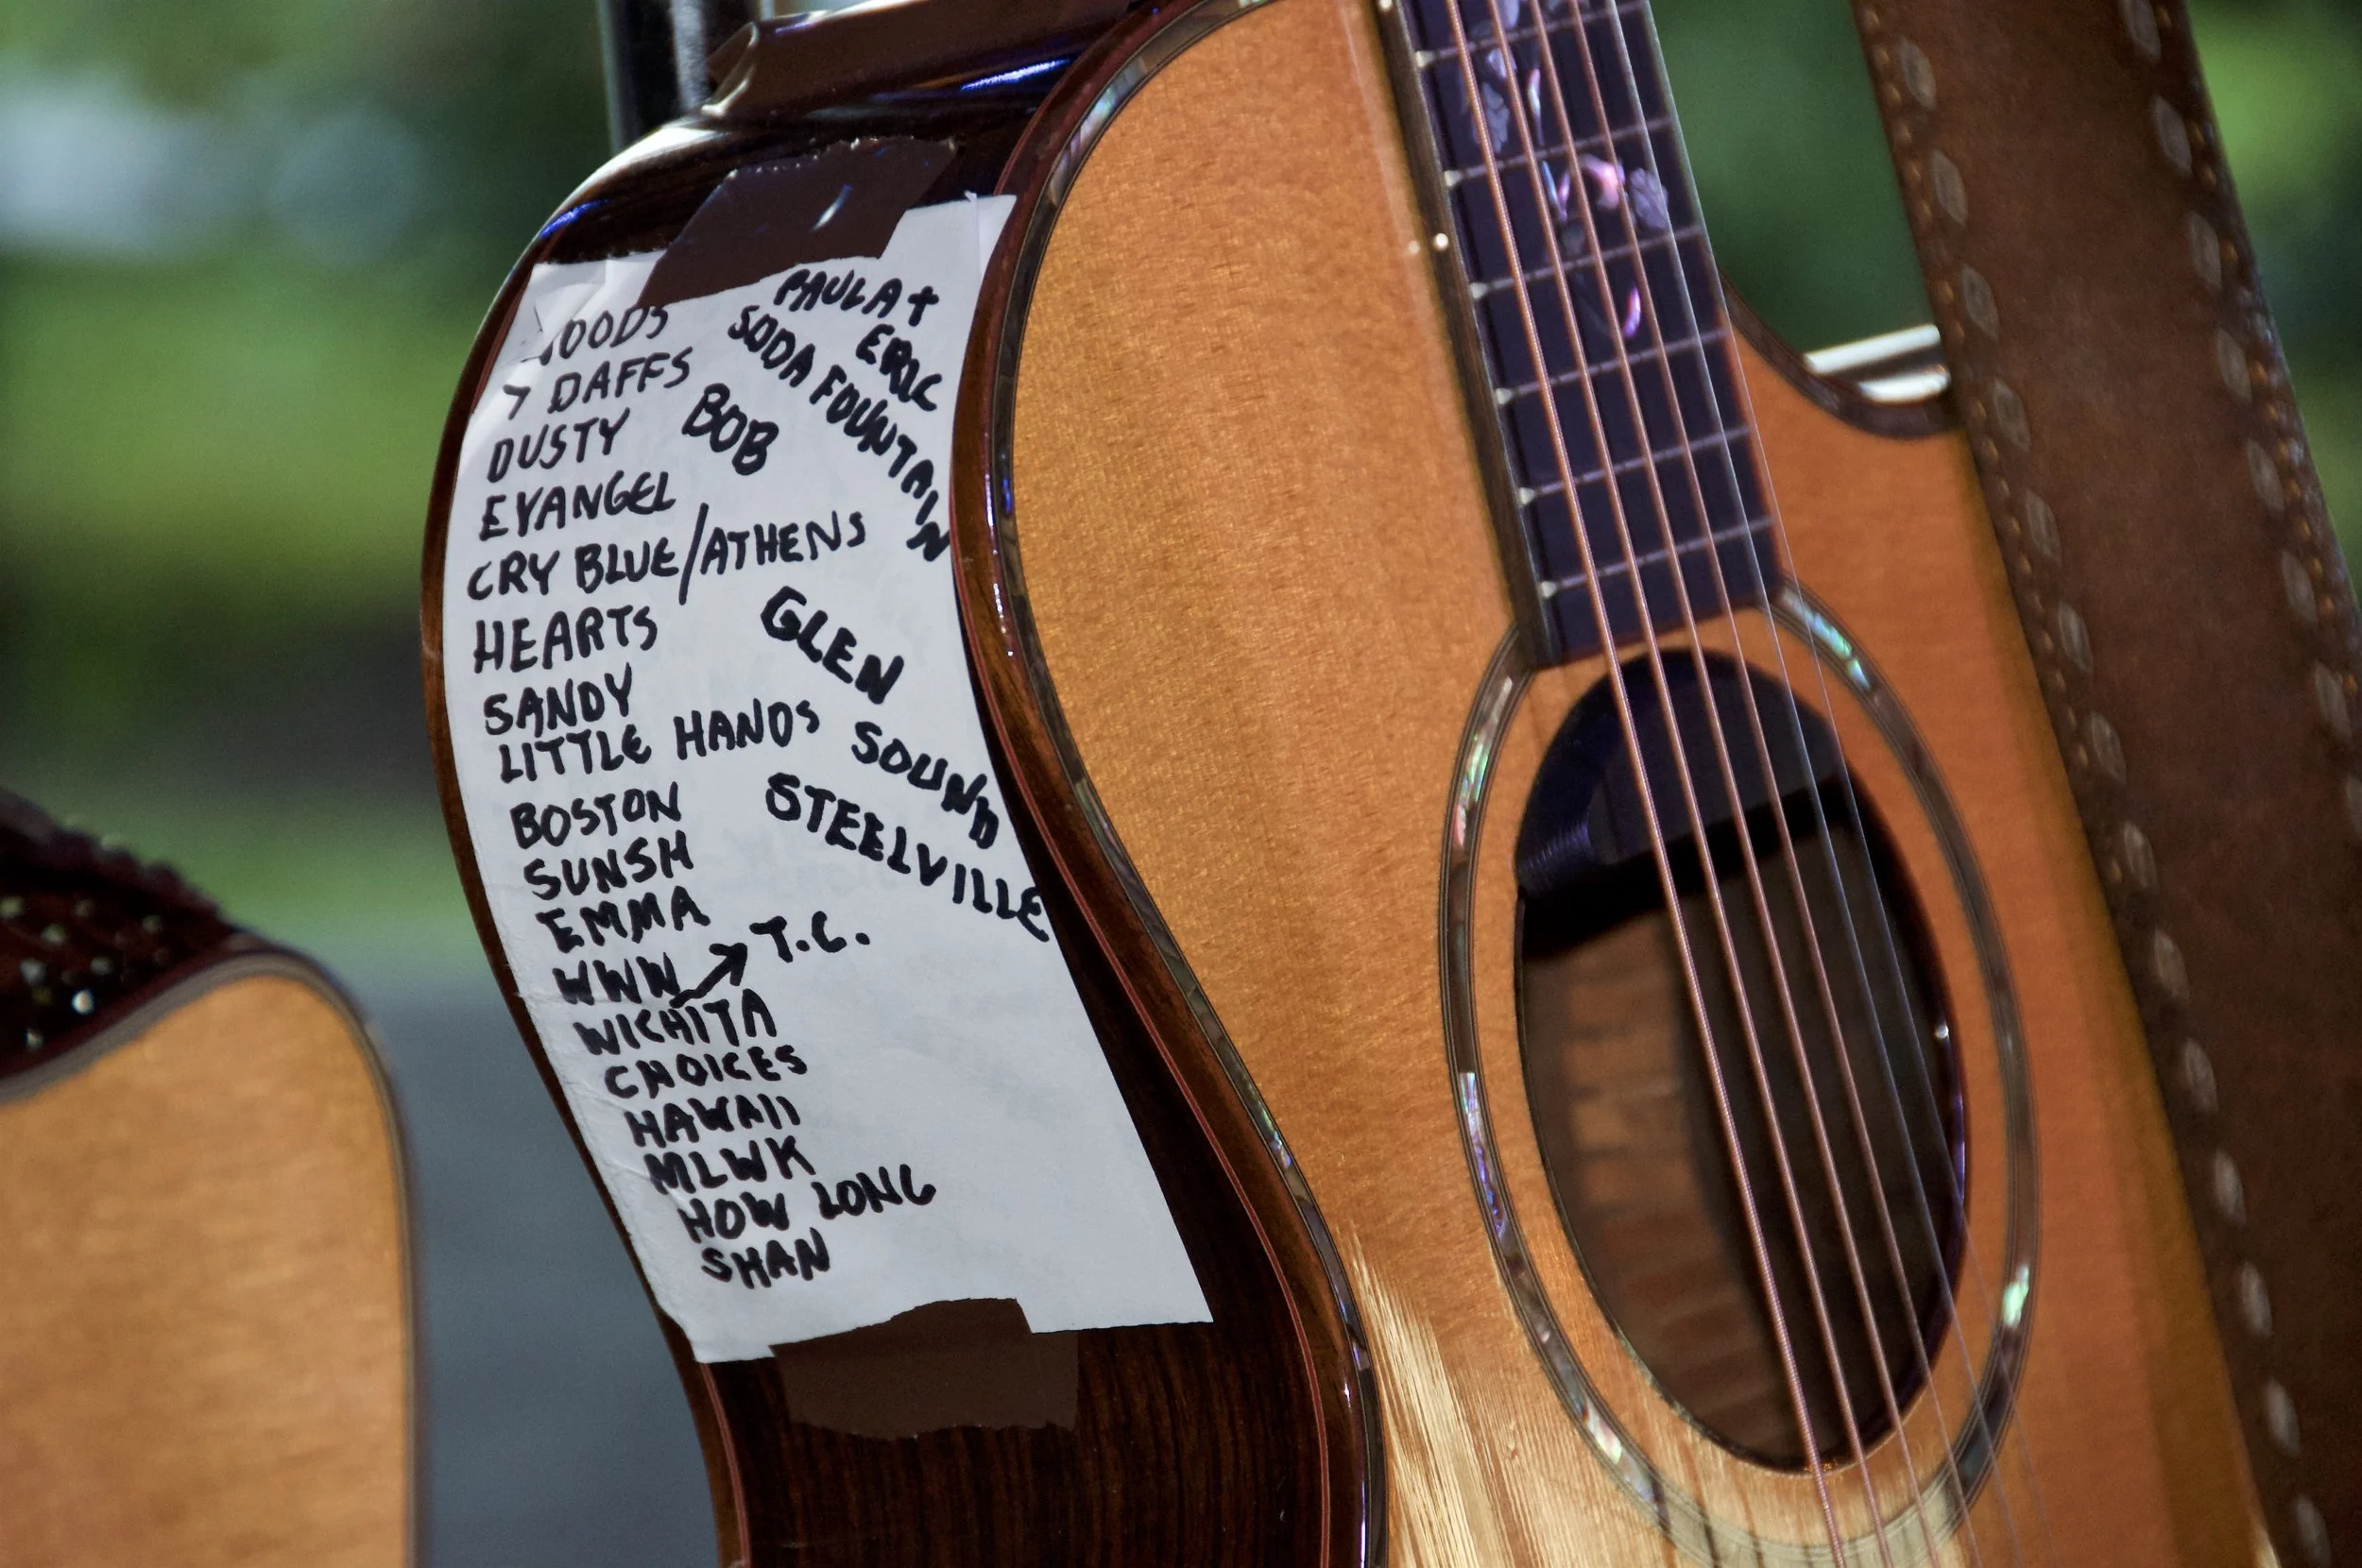 PAULA +
ERIC
SODA FOUNTAIN
DAFFS
BOB
DUSTY
EVANGEL
CRY BLUE/ATHENS
HEARTS
GLEN
SANDY
LITTLE HANDS
SOUND
STEELVILLE
BOSTON
SUNSH
EMMA
WWW → T.C.
WICHITA
CHOICES
HAWAII
MLWK
HOW LONG
SHAN